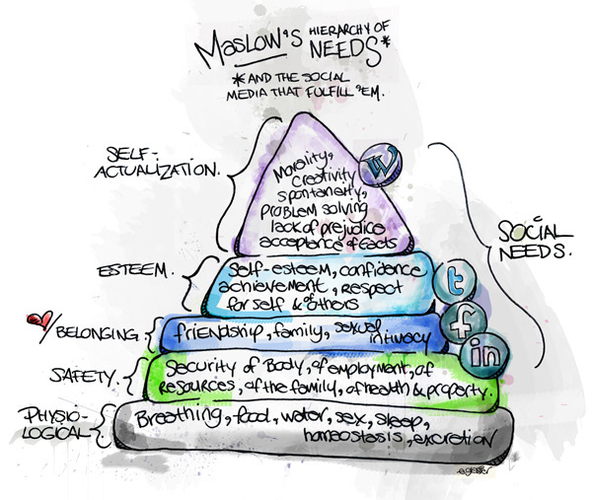 MASLOW'S HIERARCHY OF NEEDS*
*AND THE SOCIAL
MEDIA THAT FULFILL 'EM.
SELF-
ACTUALIZATION.
Morality,
Creativity
spontaneity,
problem solving
lack of prejudice
acceptance of facts
W
SOCIAL
NEEDS.
ESTEEM.
Self-esteem, confidence
achievement, respect
for self & of others
t
/BELONGING.
friendship, family, sexual
intimacy
f
SAFETY.
Security of Body, of employment, of
resources, of the family, of health & property.
in
PHYSIO-
LOGICAL
Breathing, food, water, sex, sleep,
homeostasis, excretion